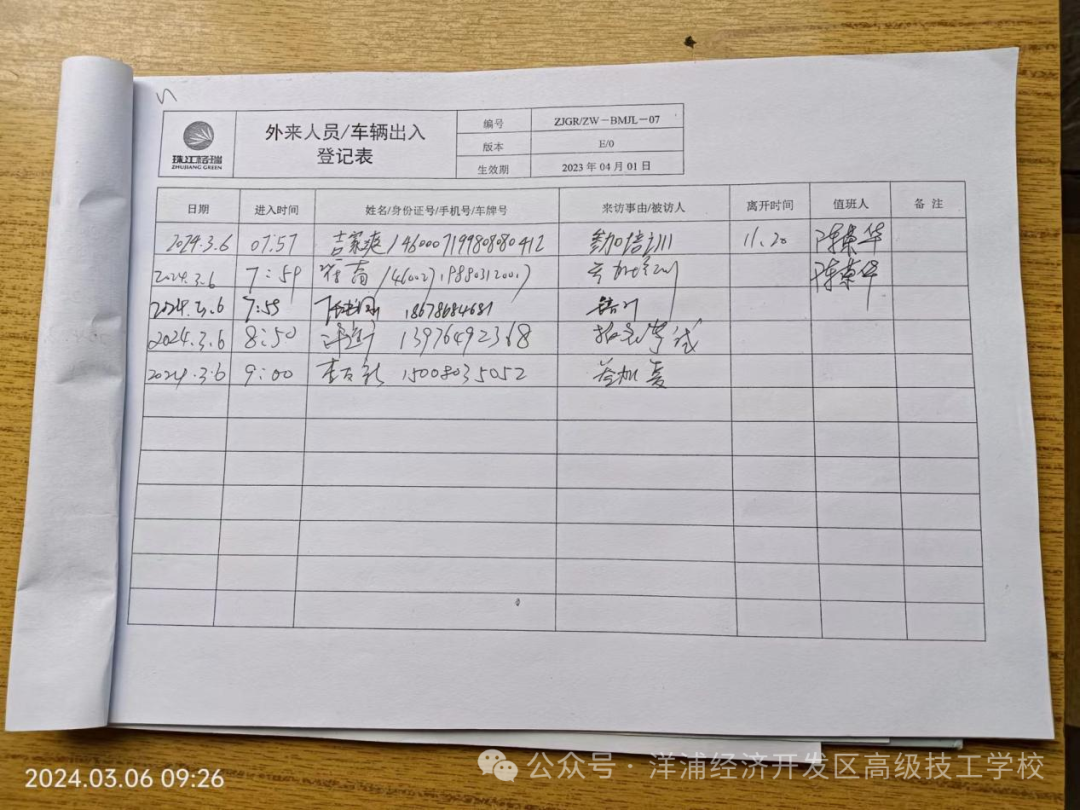 珠江格瑞
ZHUJIANG GREEN
外来人员/车辆出入
登记表
编号 ZJGR/ZW-BMJL-07
版本 E/0
生效期 2023年04月01日
日期 进入时间 姓名/身份证号/手机号/车牌号 来访事由/被访人 离开时间 值班人 备注
2024.3.6 07:57 吉家爽/460007199808080412 参加培训 11.20
2024.3.6 7:59
2024.3.6 7:59 18678684681 培训
2024.3.6 8:50 13976492368 报名考试
2024.3.6 9:00 15008035052 参加
2024.03.06 09:26
公众号·洋浦经济开发区高级技工学校